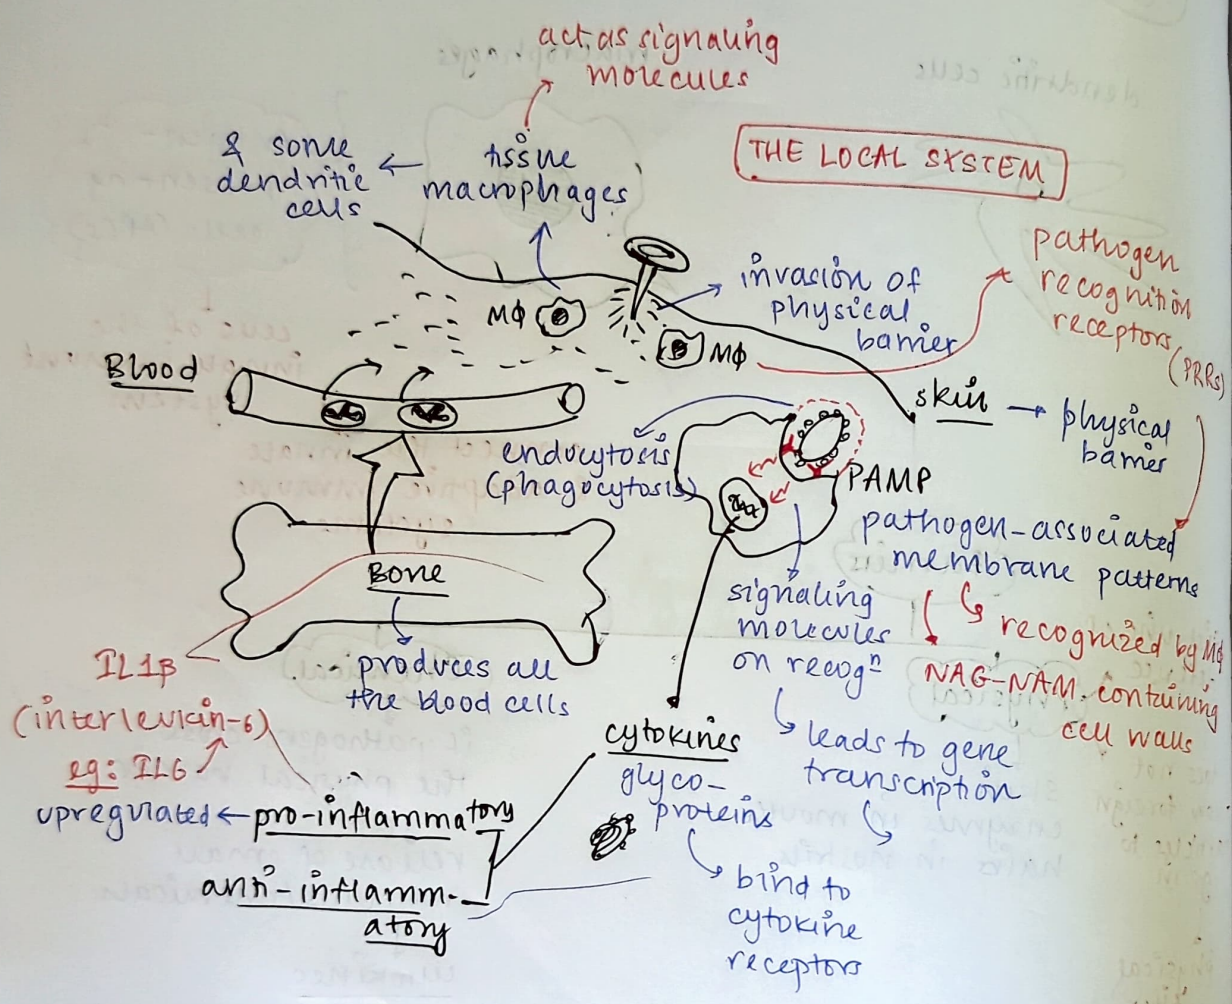 act as signaling
molecules
& some
dendritic
cells
tissue
macrophages
THE LOCAL SYSTEM
pathogen
recognition
receptors
(PRRs)
invasion of
physical
barrier
MΦ
MΦ
Blood
skin → physical
barrier
endocytosis
(phagocytosis)
PAMP
pathogen-associated
membrane patterns
recognized by MΦ
NAG-NAM containing
cell walls
Bone
produces all
the blood cells
signaling
molecules
on recogⁿ
leads to gene
transcription
IL1β
(interleukin-6)
eg: IL6
upregulated ← pro-inflammatory
anti-inflamm-
atory
cytokines
glyco-
proteins
bind to
cytokine
receptors